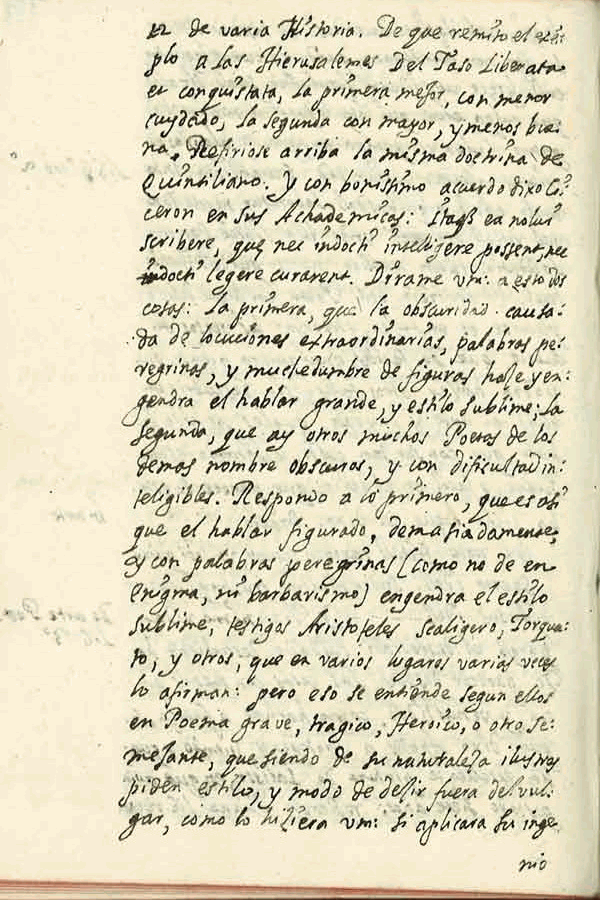 de varia Historia. De que remito el exem
plo a las Hierusalemes Del Taso Liberata
et conquistata, la primera mejor, con menor
cuydado, la segunda con mayor, y menos bue:
na. Refiriose arriba la misma doctrina de
Quintiliano. Y con bonissimo acuerdo dixo Ci:
ceron en sus Achademicas: Itaq3 ea nolui
scribere, que nec indocti intelligere possent, nec
indocti legere curarent. Dirame vm: a esto dos
cosas: la primera, que la obscuridad causa:
da de locuciones extraordinarias, palabras pe:
regrinas, y muchedumbre de figuras haze y en:
gendra el hablar grande, y estilo sublime; la
segunda, que ay otros muchos Poetas de los
demas nombre obscuros, y con dificultad in:
teligibles. Respondo a lo primero, que es asi
que el hablar figurado, demasiadamente,
y con palabras peregrinas (como no de en
Enigma, ni barbarismo) engendra el estilo
sublime, testigos Aristoteles Scaligero, Torqua:
to, y otros, que en varios lugares varias veces
lo afirman: pero eso se entiende segun ellos
en Poema grave, tragico, Heroico, o otro se:
mejante, que siendo de su naturaleza ilustres
piden estilo, y modo de dezir fuera del vul:
gar, como lo hiziera vm: si aplicara su inge
nio